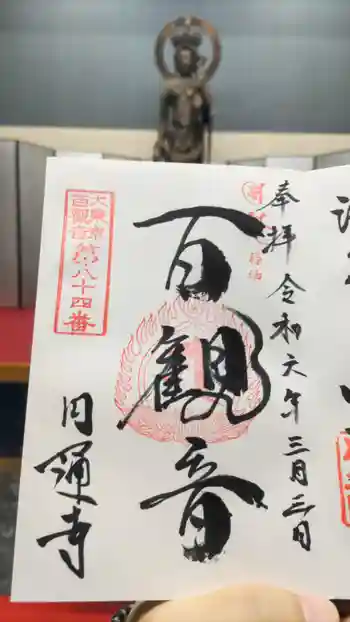 奉拝 令和六年三月三日
百観音
大東京
百観音
第八十四番
円通寺